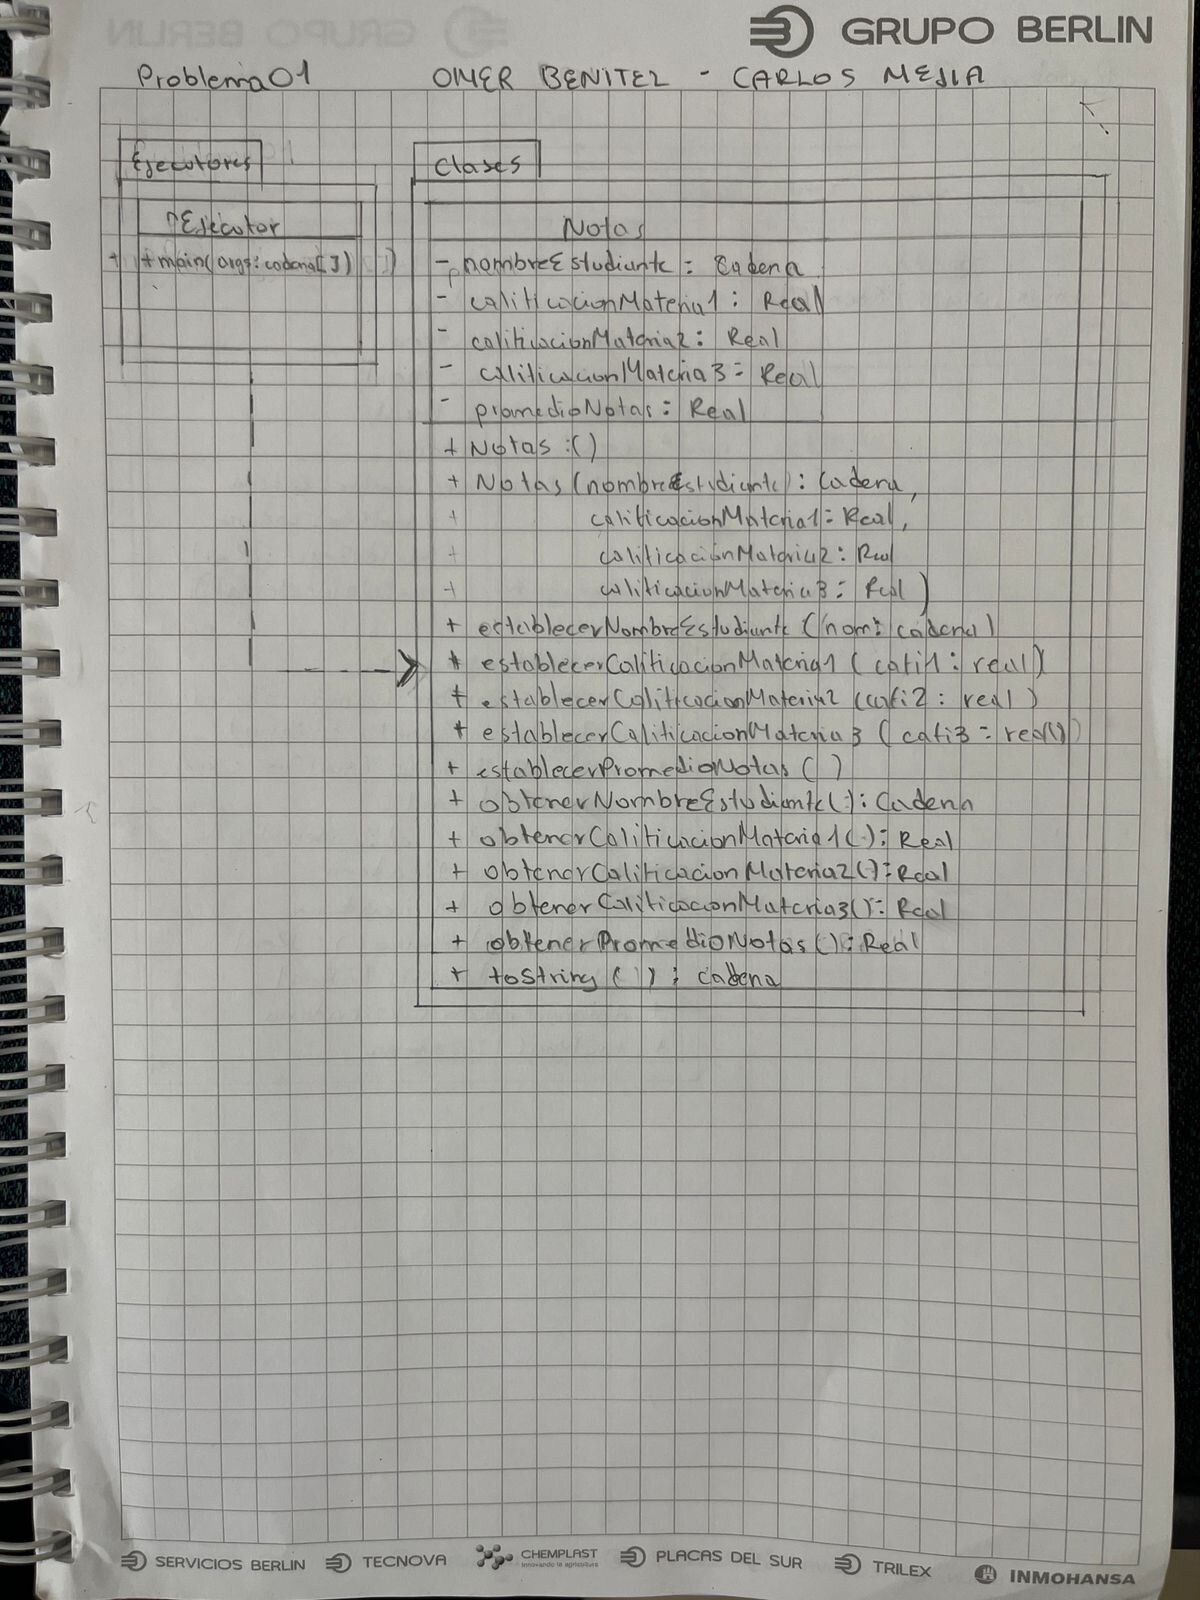 GRUPO BERLIN
Problema 01 OMER BENITEZ - CARLOS MEJIA
Ejecutores
Ejecutor
+ +main(args: cadena[])
Clases
Notas
- nombreEstudiante : Cadena
- calificacionMateria1 : Real
- calificacionMateria2 : Real
- calificacionMateria3 = Real
- promedioNotas : Real
+ Notas :()
+ Notas (nombreEstudiante) : Cadena,
+ calificacionMateria1 = Real,
+ calificacionMateria2 : Real
+ calificacionMateria3 : Real)
+ establecerNombreEstudiante (nom: cadena)
+ establecerCalificacionMateria1 (cafi1 : real)
+ establecerCalificacionMateria2 (cafi2 : real)
+ establecerCalificacionMateria3 (cafi3 = real)
+ establecerPromedioNotas ()
+ obtenerNombreEstudiante() : Cadena
+ obtenerCalificacionMateria1() : Real
+ obtenerCalificacionMateria2() : Real
+ obtenerCalificacionMateria3() : Real
+ obtenerPromedioNotas () : Real
+ toString () : cadena
SERVICIOS BERLIN TECNOVA CHEMPLAST PLACAS DEL SUR TRILEX INMOHANSA
innovando la agricultura